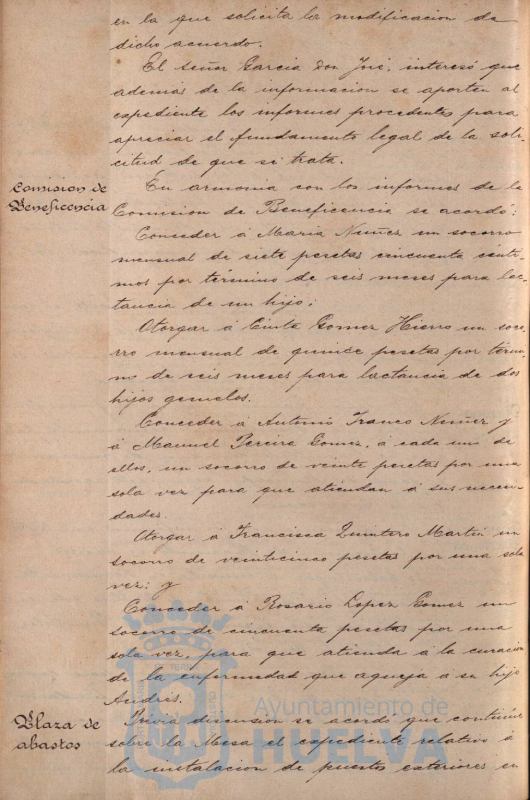 en la que solicita la modificacion de
dicho acuerdo.
El señor Garcia don José, interesó que
además de la informacion se aporten al
expediente los informes procedentes para
apreciar el fundamento legal de la soli-
citud de que se trata.
Comision de
Beneficencia
En armonia con los informes de la
Comision de Beneficencia se acordó:
Conceder á Maria Nuñez un socorro
mensual de siete pesetas cincuenta cénti-
mos por término de seis meses para lac-
tancia de un hijo;
Otorgar á Cinta Gomez Hierro un soco-
rro mensual de quince pesetas por térmi-
no de seis meses para lactancia de dos
hijos gemelos.
Conceder á Antonio Franco Nuñez y
á Manuel Pereira Gomez, á cada uno de
ellos, un socorro de veinte pesetas por una
sola vez para que atiendan á sus necesi-
dades.
Otorgar á Francisca Quintero Martin un
socorro de veinticinco pesetas por una sola
vez; y
Conceder á Rosario Lopez Gomez un
socorro de cincuenta pesetas por una
sola vez, para que atienda á la curacion
de la enfermedad que aqueja á su hijo
Andrés.
Plaza de
abastos
Prévia discusion se acordó que continúe
sobre la Mesa el expediente relativo á
la instalacion de puestos exteriores en
Ayuntamiento de
HUELVA